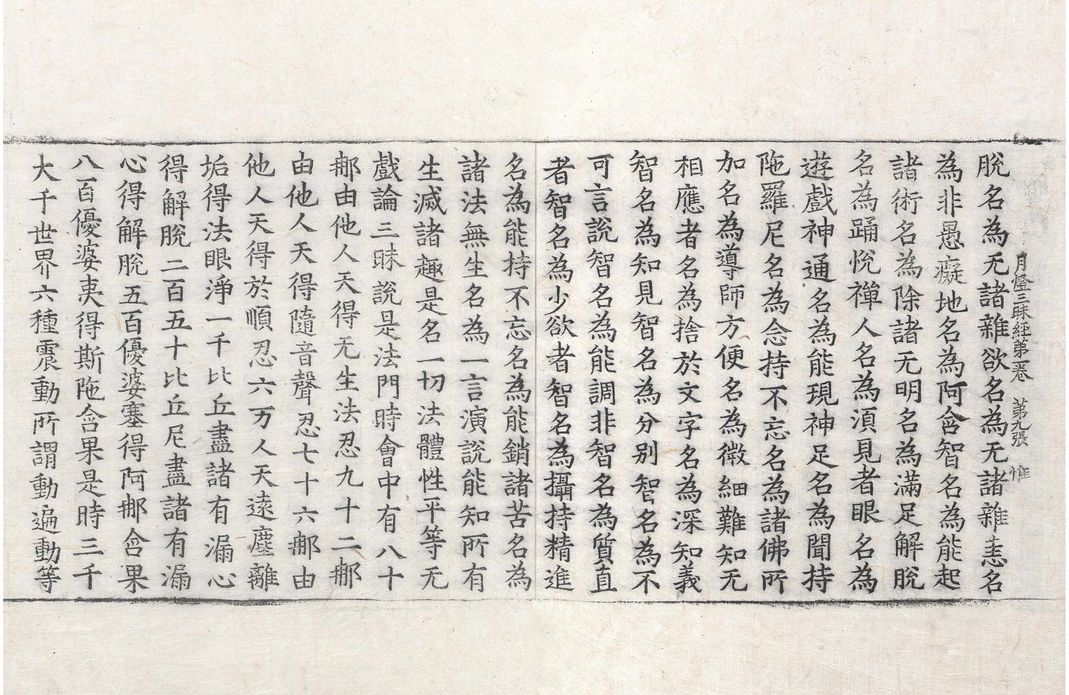 月燈三昧經第一卷 第九張 惟
脫名為无諸雜欲名為无諸雜恚名
為非愚癡地名為阿含智名為能起
諸術名為除諸无明名為滿足解脫
名為踊悅禪人名為須見者眼名為
遊戲神通名為能現神足名為聞持
陁羅尼名為念持不忘名為諸佛所
加名為導師方便名為微細難知无
相應者名為捨於文字名為深知義
智名為知見智名為分別智名為不
可言說智名為能調非智名為質直
者智名為少欲者智名為攝持精進
名為能持不忘名為能銷諸苦名為
諸法無生名為一言演說能知所有
生滅諸趣是名一切法體性平等无
戲論三昧說是法門時會中有八十
那由他人天得无生法忍九十二那
由他人天得隨音聲忍七十六那由
他人天得於順忍六万人天遠塵離
垢得法眼淨一千比丘盡諸有漏心
得解脫二百五十比丘尼盡諸有漏
心得解脫五百優婆塞得阿那含果
八百優婆夷得斯陁含果是時三千
大千世界六種震動所謂動遍動等